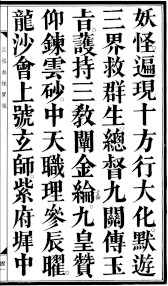 妖怪遍現十方行大化默遊
三界救群生總督九關傳玉
㫖護持三敎闡金綸九皇贊
仰鍊雲砂中天職理參辰曜
龍沙會上號玄師紫府墀中